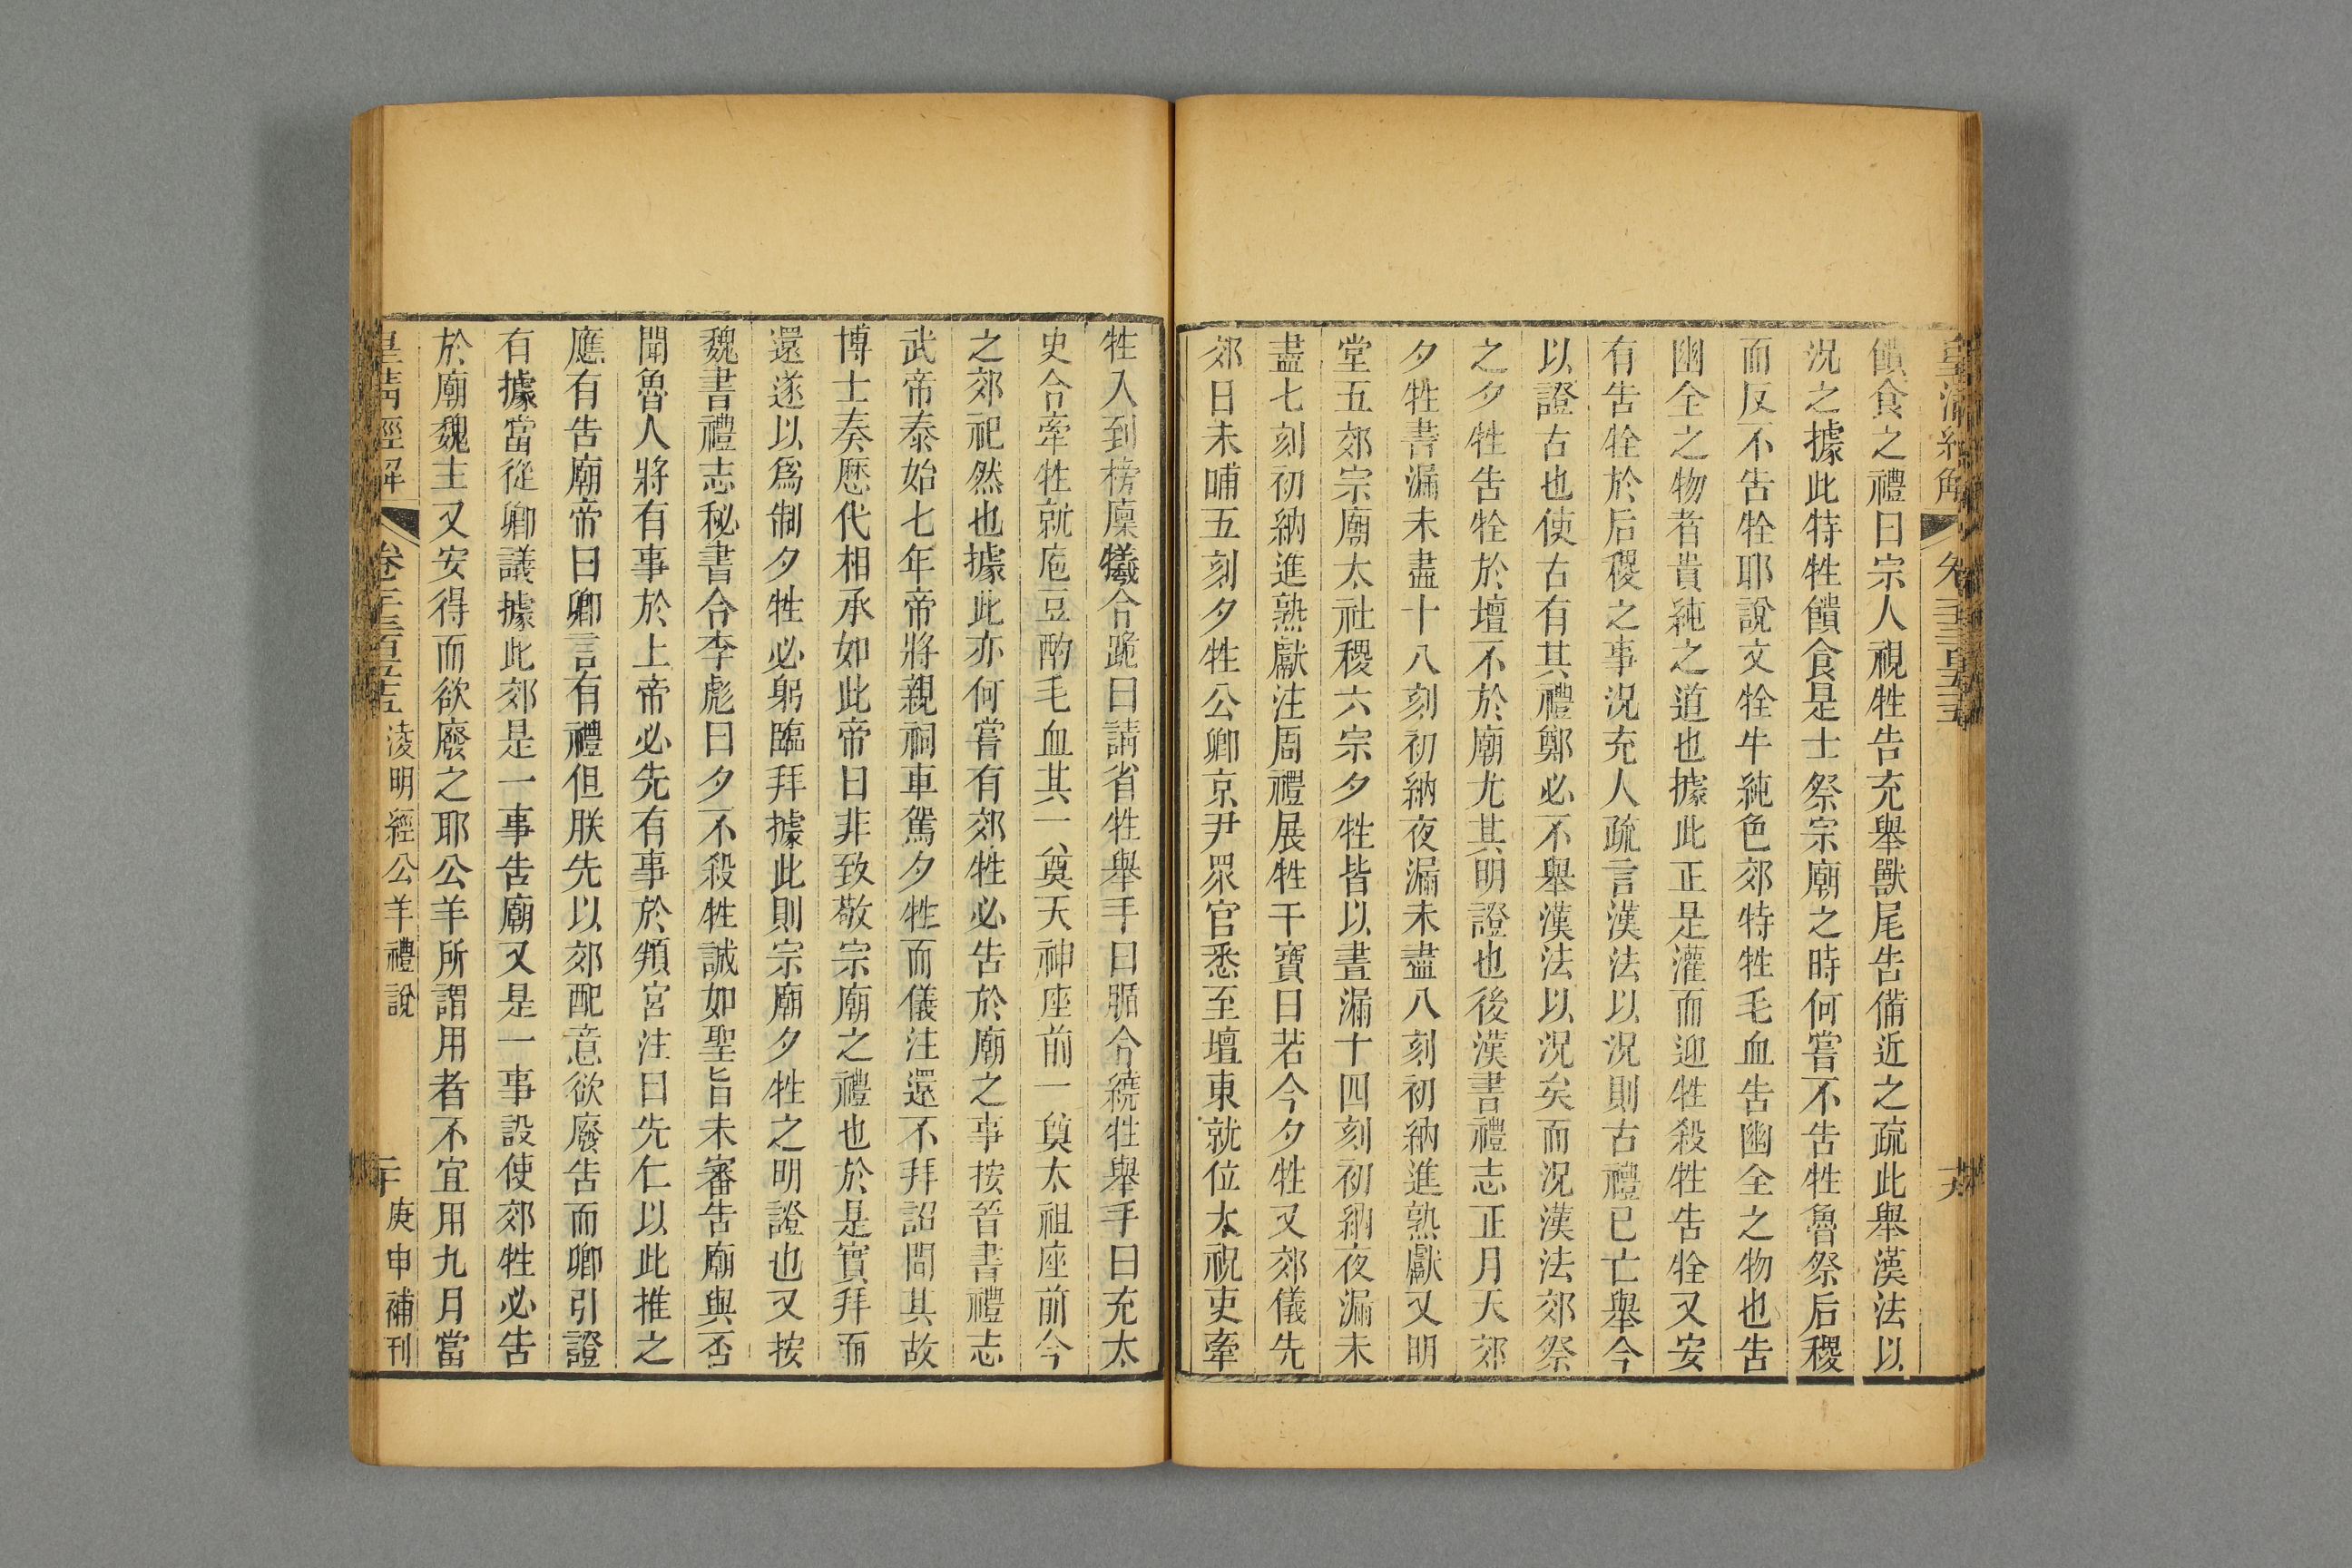 饋食之禮曰宗人視牲告充舉獸尾告備近之疏此舉漢法以
況之據此特牲饋食是士祭宗廟之時何嘗不告牲魯祭后稷
而反不告牷耶說文牷牛純色郊特牲毛血告幽全之物也告
幽全之物者貴純之道也據此正是灌而迎牲殺牲告牷又安
有告牷於后稷之事況充人疏言漢法以況則古禮已亡舉今
以證古也使古有其禮鄭必不舉漢法以況矣而況漢法郊祭
之夕牲告牷於壇不於廟尤其明證也後漢書禮志正月天郊
夕牲晝漏未盡十八刻初納夜漏未盡八刻初納進熟獻又明
堂五郊宗廟太社稷六宗夕牲皆以晝漏十四刻初納夜漏未
盡七刻初納進熟獻注周禮展牲干寶曰若今夕牲又郊儀先
郊日未晡五刻夕牲公卿京尹眾官悉至壇東就位太祝吏牽
牲入到榜廩犧令跪曰請省牲舉手曰腯令繞牲舉手曰充太
史令牽牲就庖豆酌毛血其一奠天神座前一奠太祖座前今
之郊祀然也據此亦何嘗有郊牲必告於廟之事按晉書禮志
武帝泰始七年帝將親祠車駕夕牲而儀注還不拜詔問其故
博士奏歷代相承如此帝曰非致敬宗廟之禮也於是實拜而
還遂以爲制夕牲必躬臨拜據此則宗廟夕牲之明證也又按
魏書禮志秘書令李彪曰夕不殺牲誠如聖旨未審告廟與否
聞魯人將有事於上帝必先有事於頖宮注曰先仁以此推之
應有告廟帝曰卿言有禮但朕先以郊配意欲廢告而卿引證
有據當從卿議據此郊是一事告廟又是一事設使郊牲必告
於廟魏主又安得而欲廢之耶公羊所謂用者不宜用九月當
皇清經解 卷一千三百五十五 淩明經公羊禮說 二十 庚申補刊